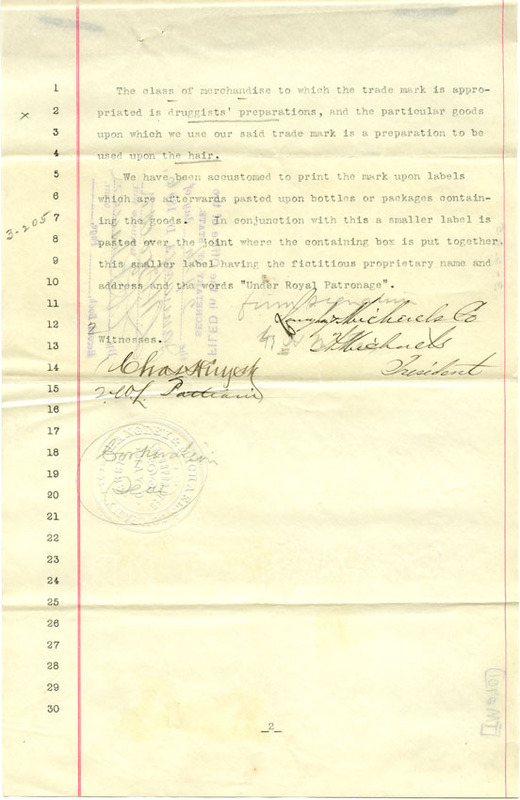 1 The class of merchandise to which the trade mark is appro-
x 2 priated is druggists' preparations, and the particular goods
3 upon which we use our said trade mark is a preparation to be
4 used upon the hair.
5 We have been accustomed to print the mark upon labels
6 which are afterwards pasted upon bottles or packages contain-
3-205 7 ing the goods. In conjunction with this a smaller label is
8 pasted over the joint where the containing box is put together,
9 this smaller label having the fictitious proprietary name and
10 address and the words "Under Royal Patronage".
11
12 Langley & Michaels Co
13 Witnesses. Michaels
14 President
15
16
17
18 Corporation
19 Seal
20
21
22
23
24
25
26
27
28
29
30
-2-